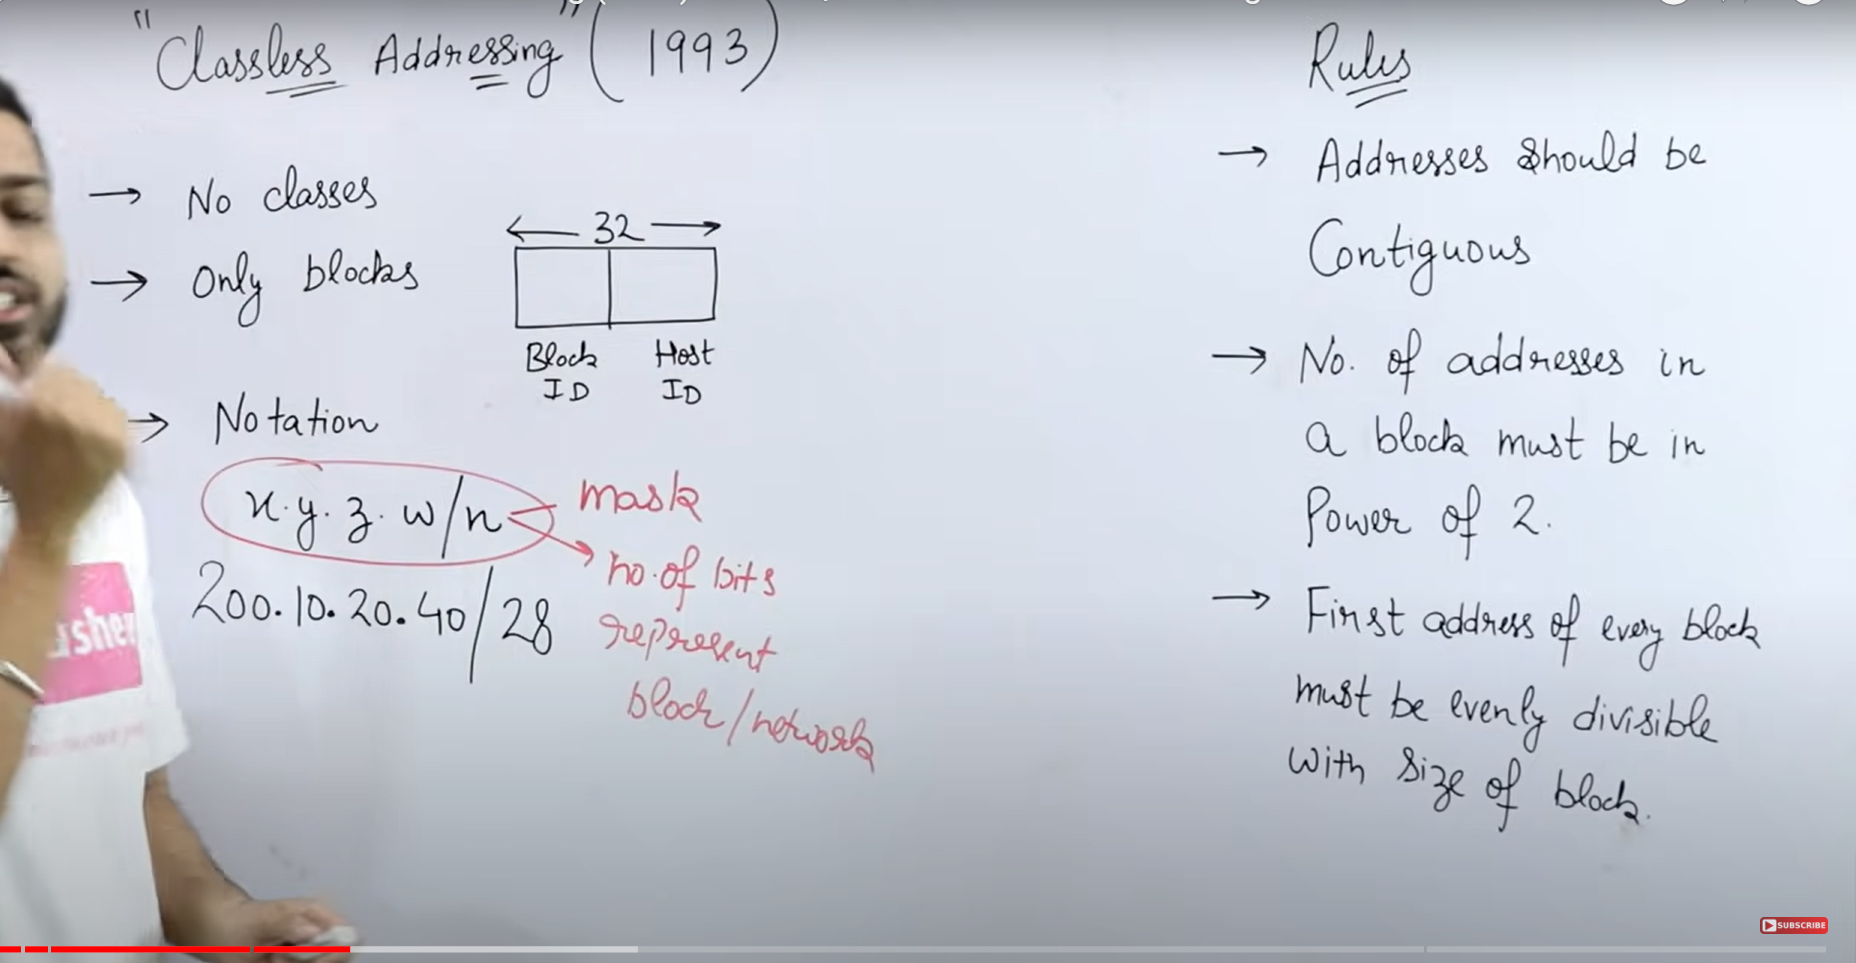 "Classless Addressing" (1993)
→ No classes
→ Only blocks
← 32 →
Block Host
ID ID
→ Notation
x.y.z.w/n
mask
no.of bits
represent
block/network
200.10.20.40/28
Rules
→ Addresses should be
Contiguous
→ No. of addresses in
a block must be in
Power of 2.
→ First address of every block
must be evenly divisible
with size of block.
SUBSCRIBE